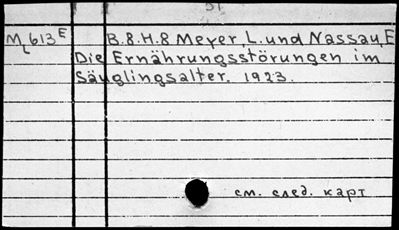 51
M L 613 E B.8.H.8 Meyer, L. und Nassau, E
Die Ernährungsstörungen im
Säuglingsalter. 1923.
см. след. карт